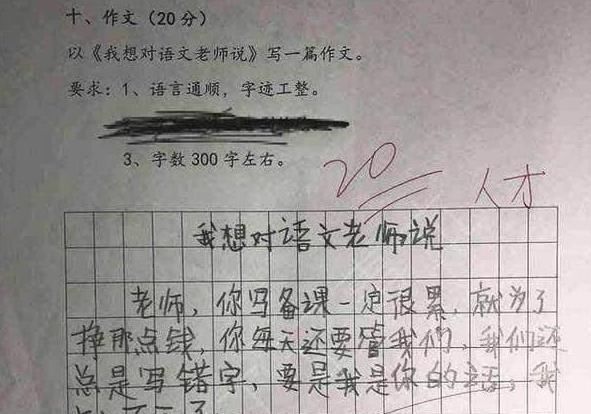 十、作文（20分）
以《我想对语文老师说》写一篇作文。
要求：1、语言通顺，字迹工整。
3、字数300字左右。
20
人才
我想对语文老师说
老师，你写备课一定很累，就为了
挣那点钱，你每天还要管我们，我们还
总是写错字，要是我是你的话，我